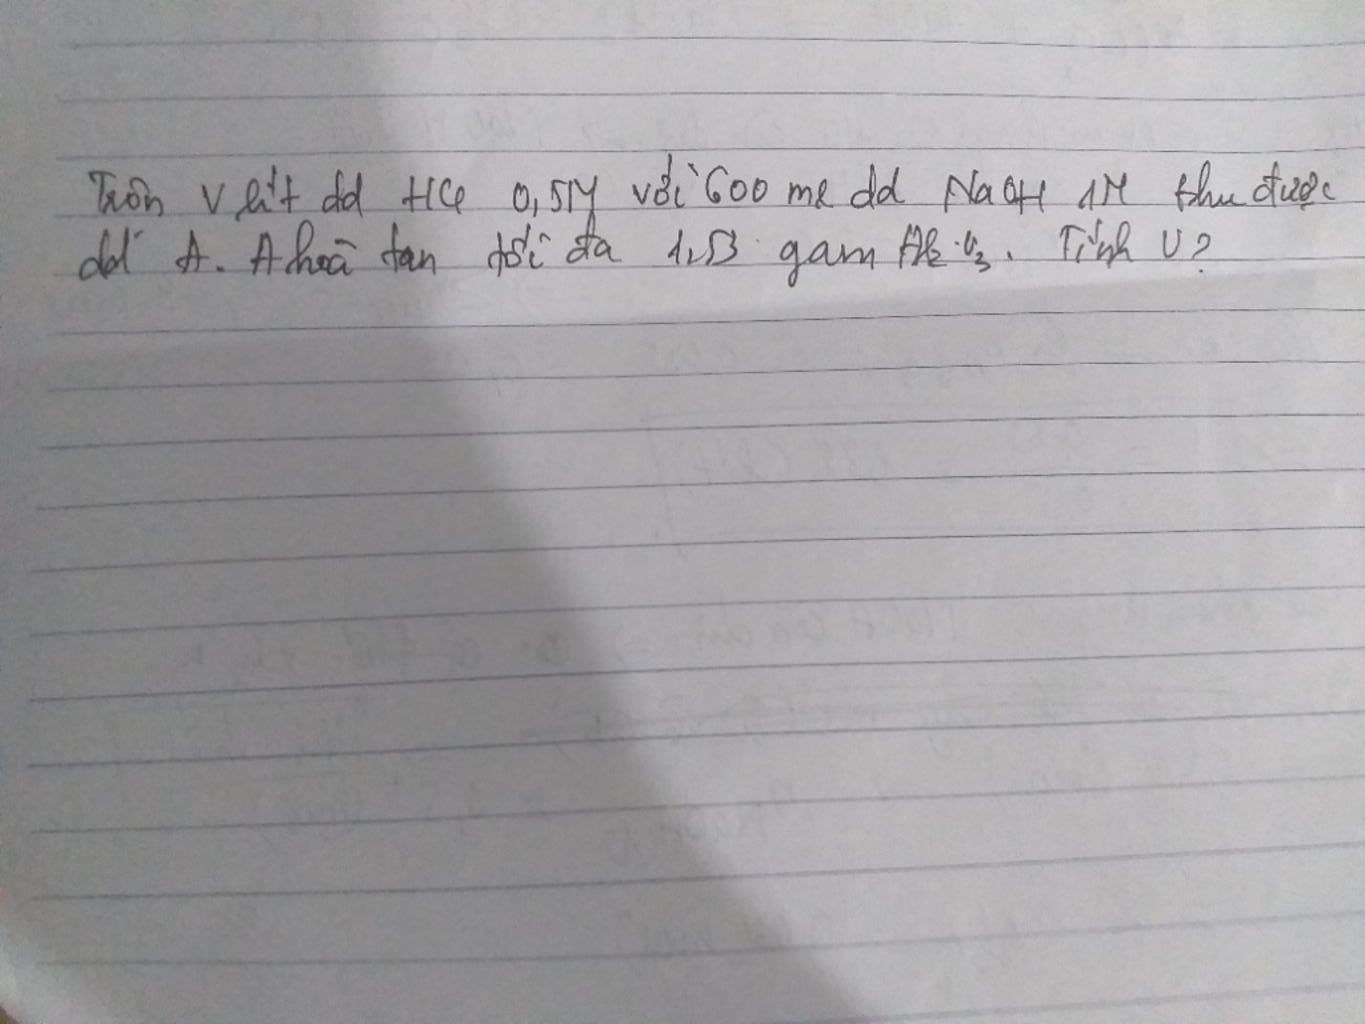 Trộn V lít dd HCl 0,5M với 600 ml dd NaOH 1M thu được
dd A. A hoà tan tối đa 1,53 gam Al2O3. Tính V?